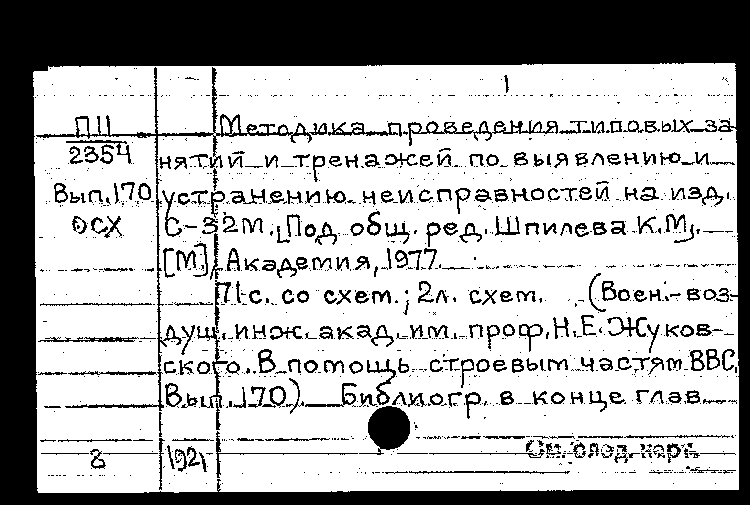 1
П 11
2354
Вып. 170
ОСХ
Методика проведения типовых за-
нятий и тренажей по выявлению и
устранению неисправностей на изд.
С-32М. [Под общ. ред. Шпилева К.М.].
[М], Академия, 1977.
71 с. со схем.; 2л. схем. (Воен.-воз-
душ. инж. акад. им. проф. Н.Е. Жуков-
ского. В помощь строевым частям ВВС.
Вып. 170). Библиогр. в конце глав.
8
См. след. карт.